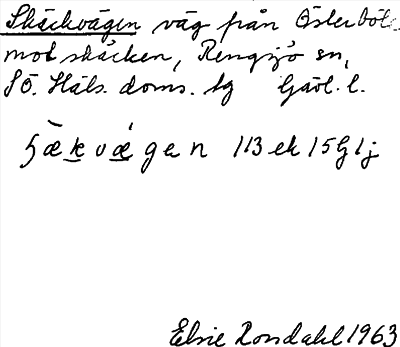 Skäckvägen väg från Österböle
mot skäcken, Rengsjö sn,
SÖ. Häls. doms. lg Gävl. l.
ʃæ̀kvǽgen 113 ek 15G1j
Elsie Rondahl 1963